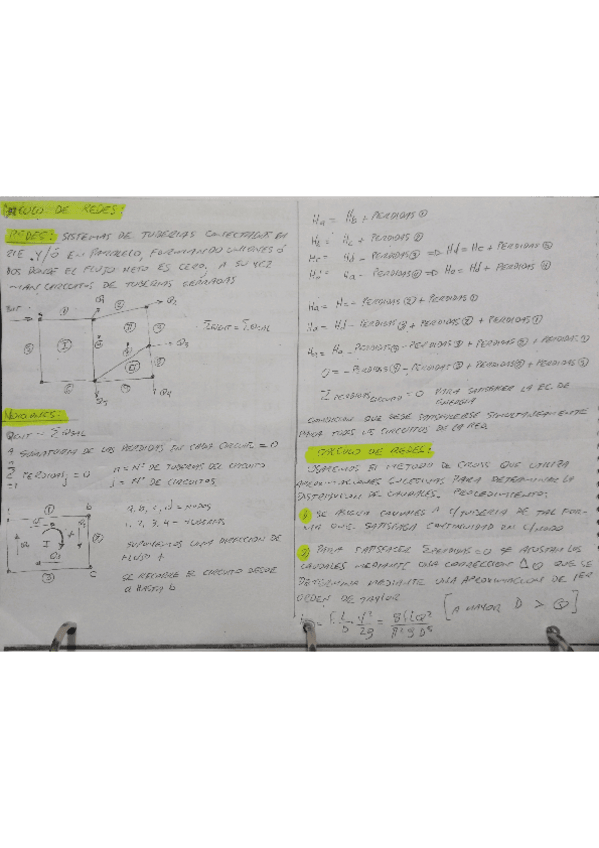 CALCULO DE REDES:
REDES: SISTEMAS DE TUBERIAS CONECTADAS EN
RIE Y/Ó EN PARALELO, FORMANDO UNIONES Ó
DOS DONDE EL FLUJO NETO ES CERO, A SU VEZ
MAN CIRCUITOS DE TUBERIAS CERRADAS
Q1
Q2
Q3
Q4
Q5
①
I
ΣQENT = ΣQSAL
CONDICIONES:
QENT = ΣQSAL
A SUMATORIA DE LAS PERDIDAS EN CADA CIRCUITO = 0
Σ PERDIDAS j = 0
n = Nº DE TUBERIAS DEL CIRCUITO
j = Nº DE CIRCUITOS
a, b, c, d = NODOS
1, 2, 3, 4 = TUBERIAS
SUPONEMOS UNA DIRECCION DE
FLUJO +
SE RECORRE EL CIRCUITO DESDE
a HASTA b
① b
I +
②
③ c
Ha = Hb + PERDIDAS ①
Hb = Hc + PERDIDAS ②
Hc = Hd - PERDIDAS ③ ⇒ Hd = Hc + PERDIDAS ③
Hd = Ha - PERDIDAS ④ ⇒ Ha = Hd + PERDIDAS ④
Ha = Hc + PERDIDAS ② + PERDIDAS ①
Ha = Hd - PERDIDAS ③ + PERDIDAS ② + PERDIDAS ①
Ha = Ha - PERDIDAS ④ - PERDIDAS ③ + PERDIDAS ② + PERDIDAS ①
0 = - PERDIDAS ④ - PERDIDAS ③ + PERDIDAS ② + PERDIDAS ①
Σ PERDIDAS CIRCUITO = 0 PARA SATISFACER LA EC. DE
ENERGIA
CONDICION QUE DEBE SATISFACERSE SIMULTANEAMENTE
PARA TODOS LOS CIRCUITOS DE LA RED.
CALCULO DE REDES:
USAREMOS EL METODO DE CROSS QUE UTILIZA
APROXIMACIONES SUCESIVAS PARA DETERMINAR LA
DISTRIBUCION DE CAUDALES. PROCEDIMIENTO:
1) SE ASIGNA CAUDALES A C/TUBERIA DE TAL FOR-
MA QUE SATISFAGA CONTINUIDAD EN C/NODO
2) PARA SATISFACER ΣPERDIDAS = 0 SE AJUSTAN LOS
CAUDALES MEDIANTE UNA CORRECCION ΔQ QUE SE
DETERMINA MEDIANTE UNA APROXIMACION DE 1ER
ORDEN DE TAYLOR
[A MAYOR D > Q]
= f L/D V²/2g = 8fLQ²/π²gD⁵